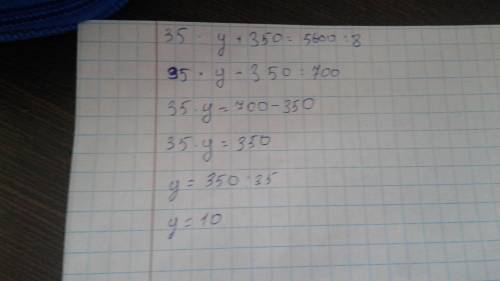 35 · y + 350 = 5600 : 8
35 · y - 350 = 700
35 · y = 700 - 350
35 · y = 350
y = 350 : 35
y = 10